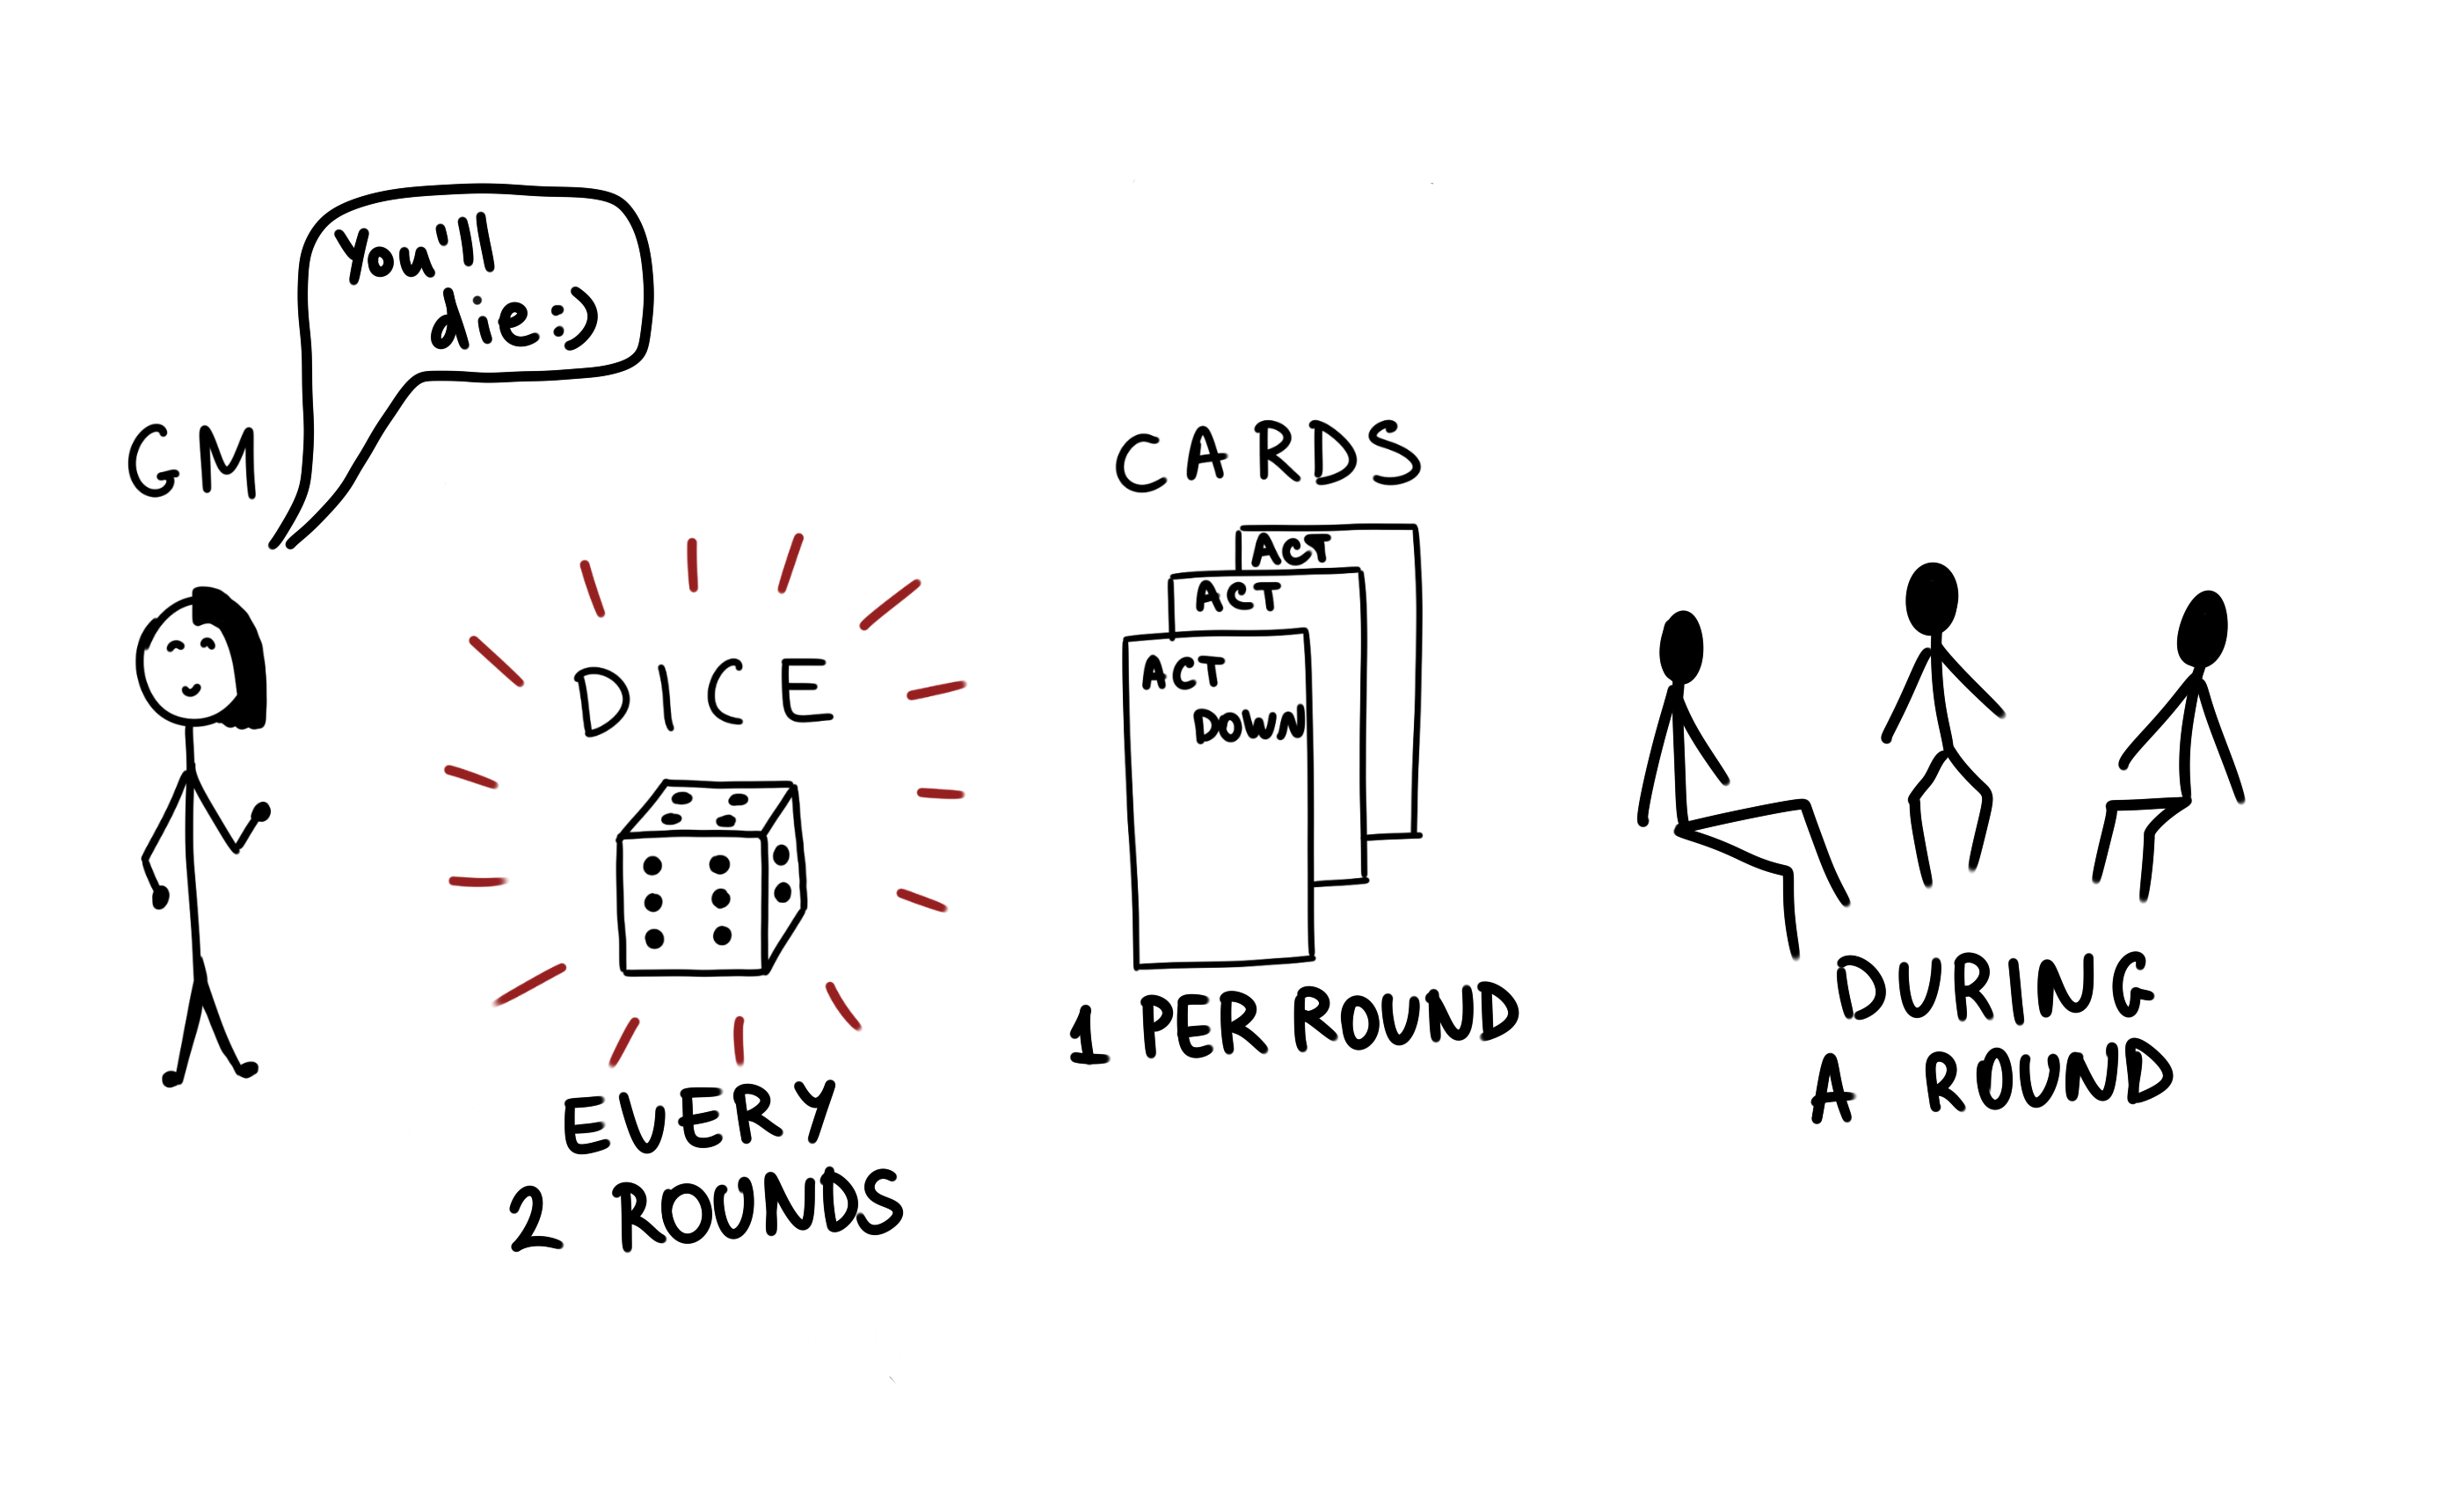 You'll
die :)
GM
DICE
EVERY
2 ROUNDS
CARDS
ACT
ACT
ACT
DOWN
1 PER ROUND
DURING
A ROUND